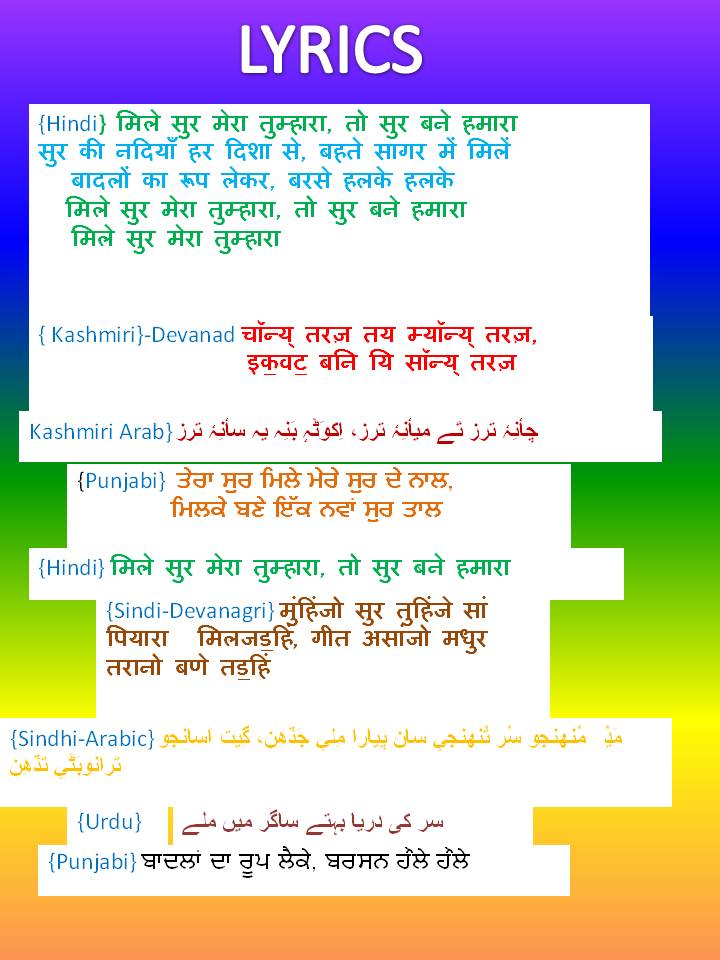 LYRICS
{Hindi} मिले सुर मेरा तुम्हारा, तो सुर बने हमारा
सुर की नदियाँ हर दिशा से, बहते सागर में मिलें
बादलों का रूप लेकर, बरसे हलके हलके
मिले सुर मेरा तुम्हारा, तो सुर बने हमारा
मिले सुर मेरा तुम्हारा
{ Kashmiri}-Devanad चॉन्य् तरज़ तय म्यॉन्य् तरज़,
इक॒वट॒ बनि यि सॉन्य् तरज़
Kashmiri Arab} چأنِۂ ترز تَے میأنِۂ ترز، اِکوَٹہٕ بَنِہ یہ سأنِۂ ترز
{Punjabi} ਤੇਰਾ ਸੁਰ ਮਿਲੇ ਮੇਰੇ ਸੁਰ ਦੇ ਨਾਲ,
ਮਿਲਕੇ ਬਣੇ ਇੱਕ ਨਵਾਂ ਸੁਰ ਤਾਲ
{Hindi} मिले सुर मेरा तुम्हारा, तो सुर बने हमारा
{Sindi-Devanagri} मुंहिंजो सुर तुहिंजे सां
पियारा मिलजड॒हिं, गीत असांजो मधुर
तरानो बणे तड॒हिं
{Sindhi-Arabic} مُنھنجو سُر تُنھنجي سان پيارا ملي جَڏھن، گيت اسانجو
ترانوبڻي تڏھن
{Urdu} سر کی دریا بہتے ساگر میں ملے
{Punjabi} ਬਾਦਲਾਂ ਦਾ ਰੂਪ ਲੈਕੇ, ਬਰਸਨ ਹੌਲੇ ਹੌਲੇ